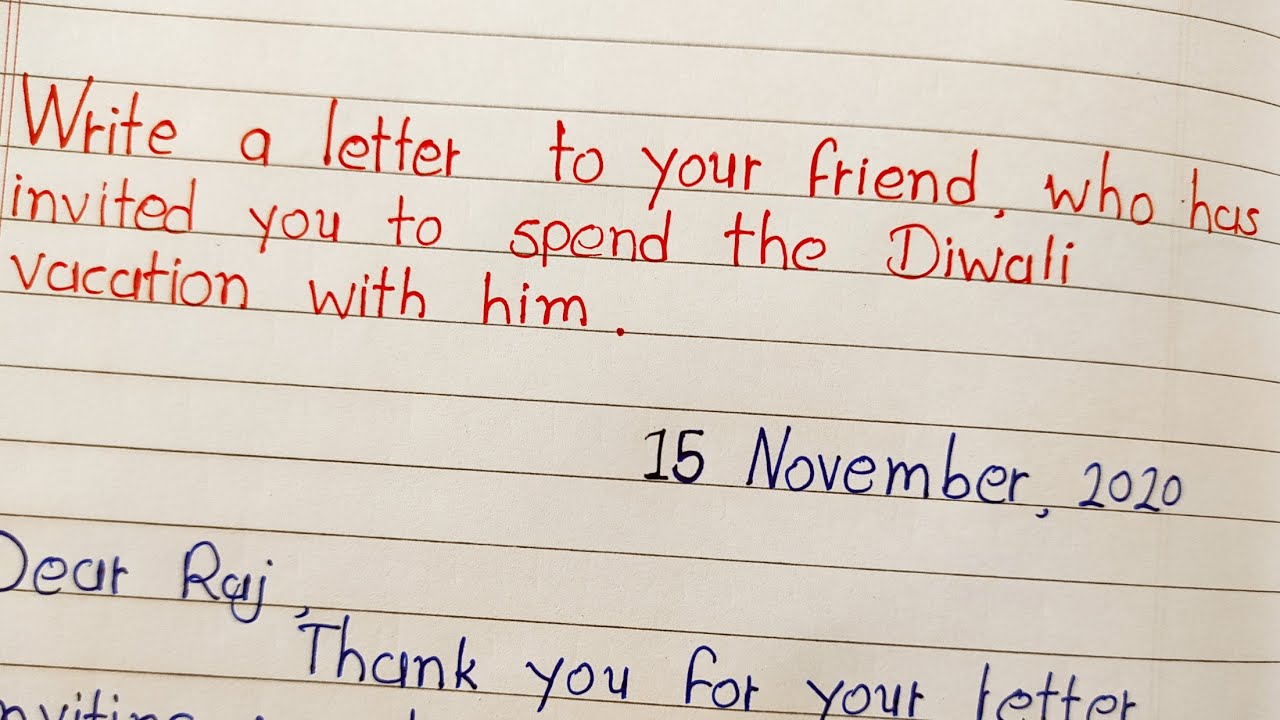 Write a letter to your friend, who has
invited you to spend the Diwali
vacation with him.
15 November, 2020
Dear Raj,
Thank you for your letter
inviting